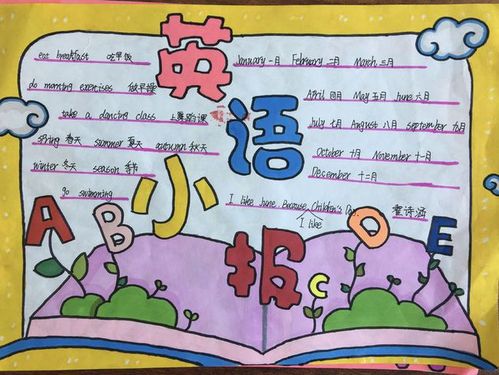 英语小报
eat breakfast 吃早饭
do morning exercises 做早操
take a dancing class 上舞蹈课
spring 春天 summer 夏天 autumn 秋天
winter 冬天 season 季节
go swimming
January 一月 February 二月 March 三月
April 四月 May 五月 June 六月
July 七月 August 八月 September 九月
October 十月 November 十一月
December 十二月
I like June. Because Children's Day
I like
A B C D E